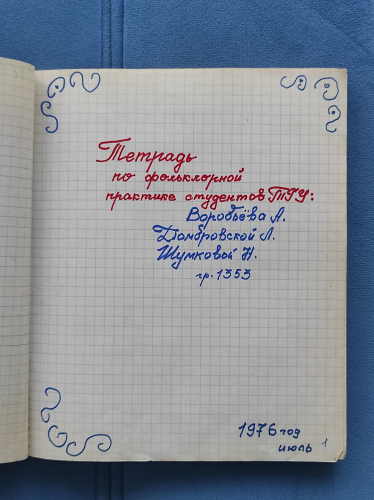 Тетрадь
по фольклорной
практике студентов ТГУ:
Воробьёва А.
Домбровской Л.
Шумковой Н.
гр. 1353
1976 год
июль 1